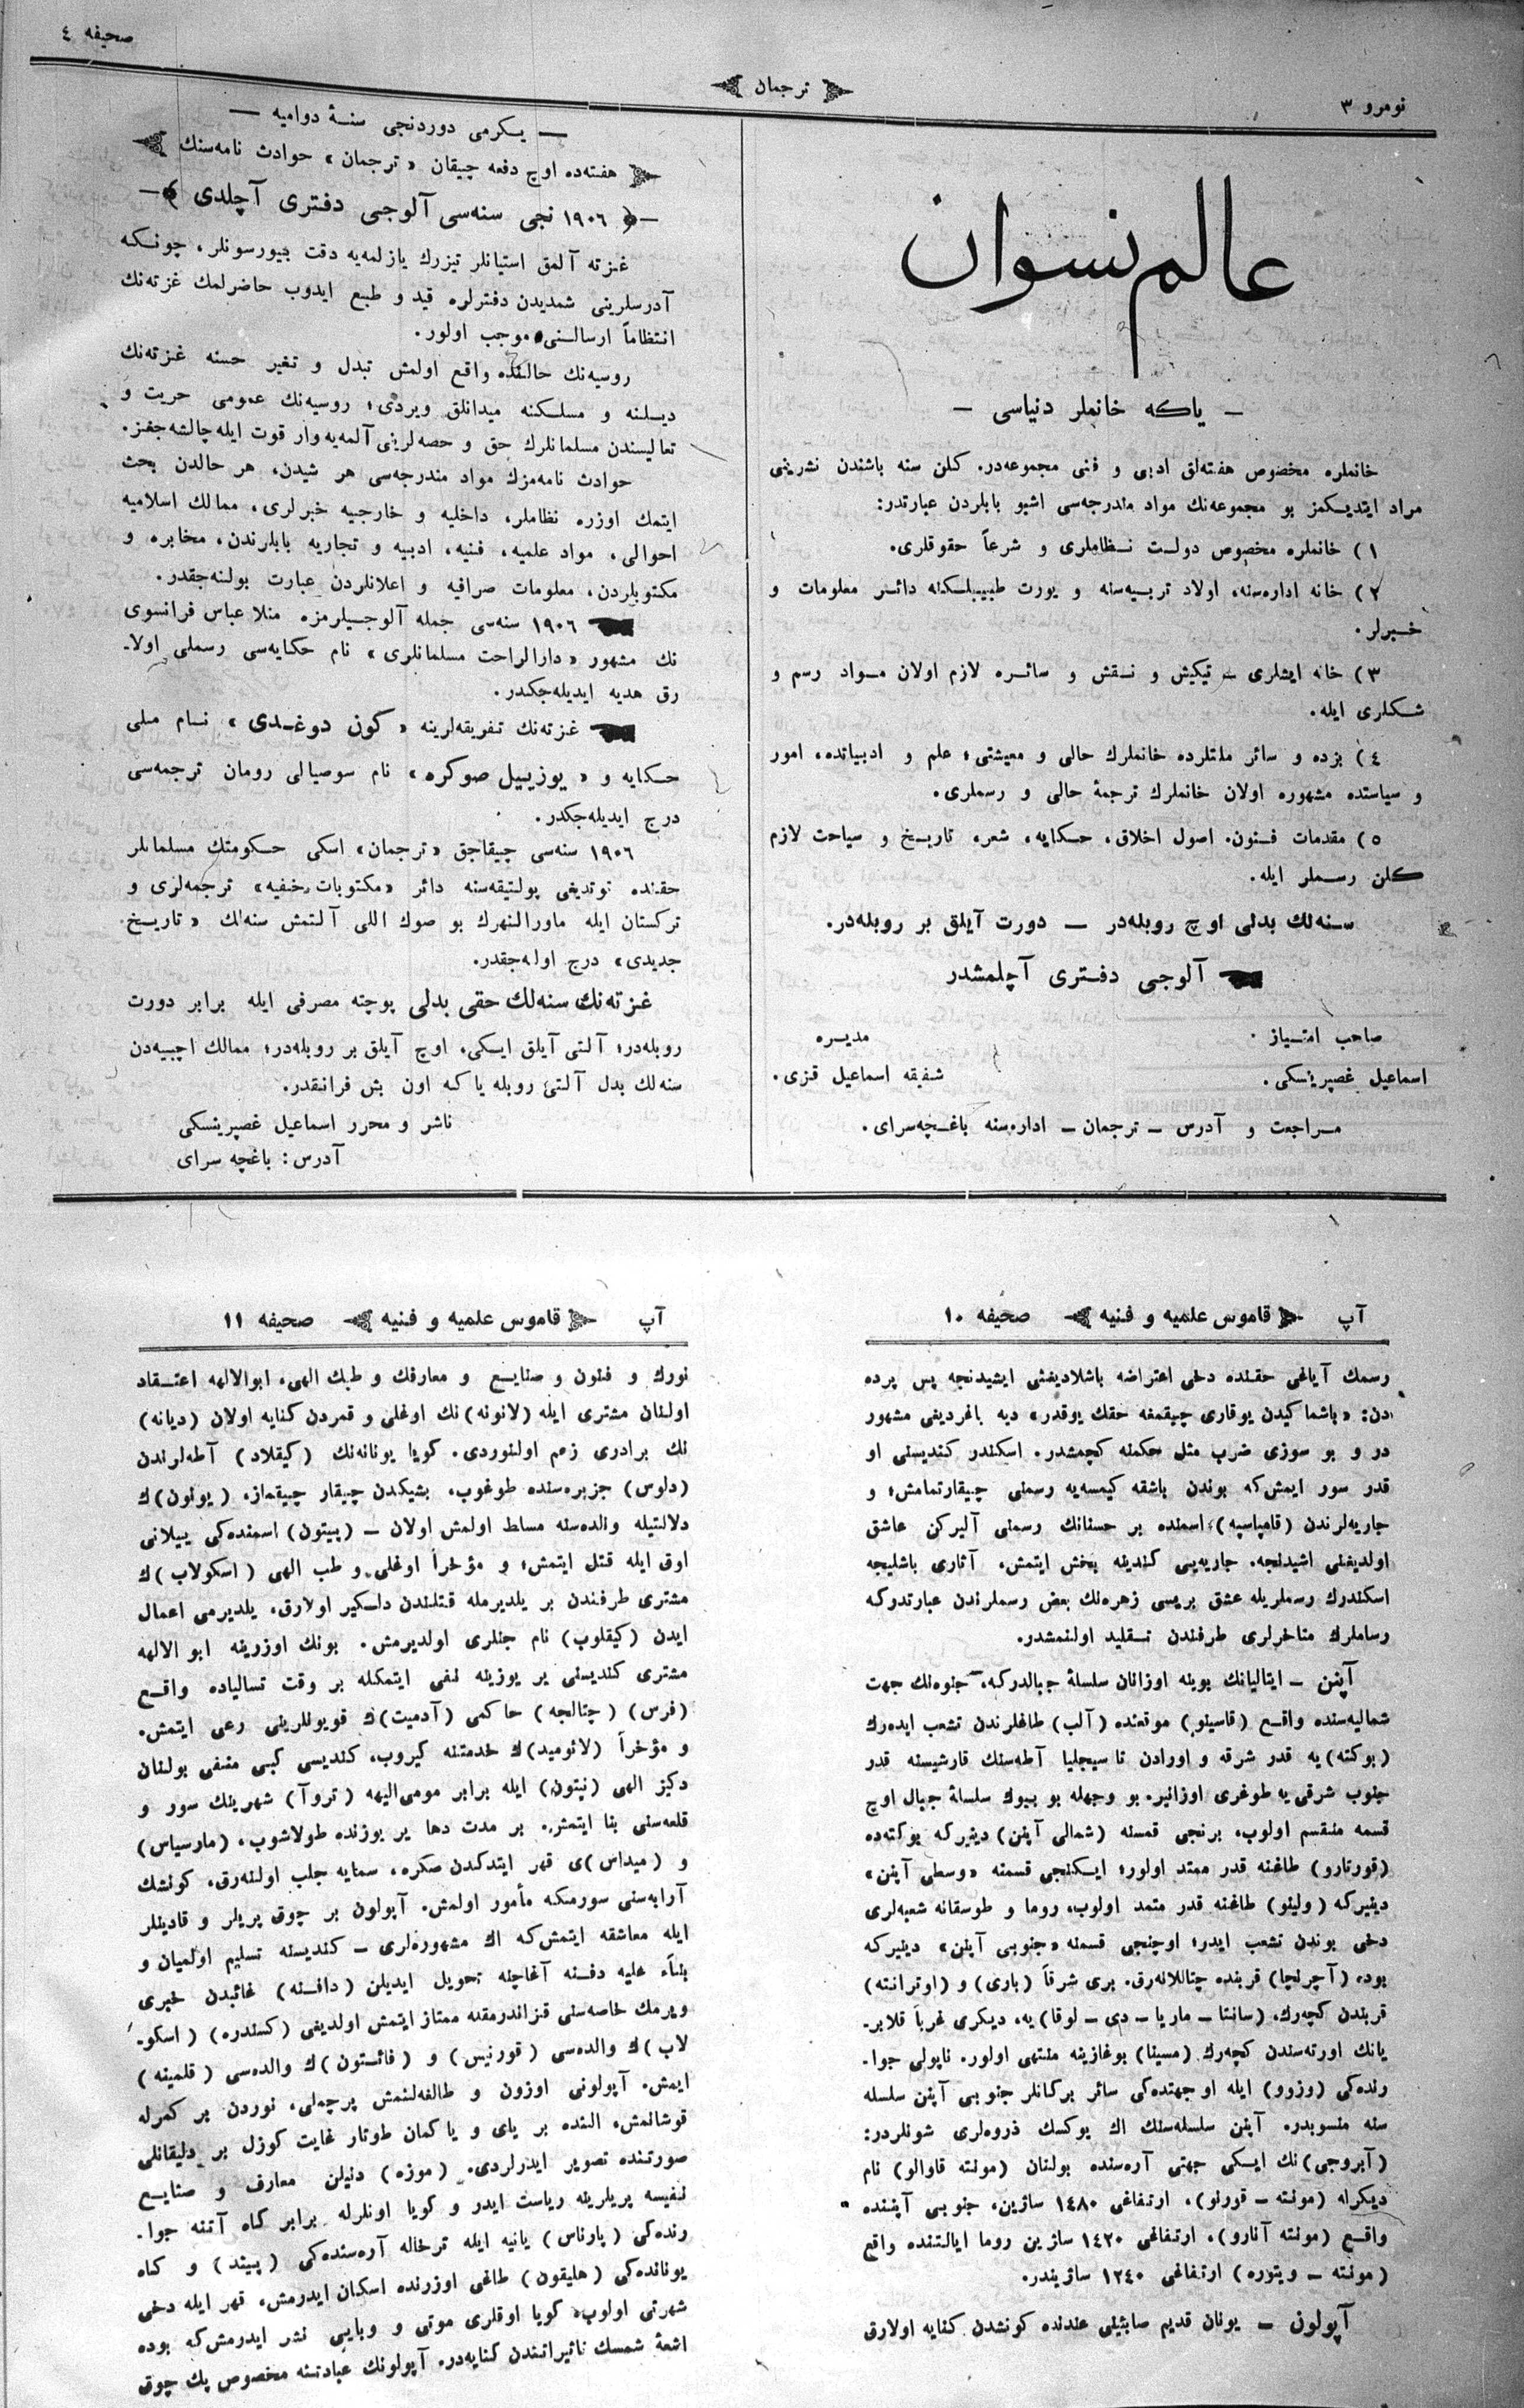 نومرو ٣
ترجمان
صحیفه ٤
عالم نسوان
— یاکه خانملر دنیاسی —
خانملره مخصوص هفته‌لق ادبی و فنی مجموعه‌در. كلن سنه باشندن نشرینی
مراد ایتدیکمز بو مجموعه‌نك مواد مندرجه‌سی اشبو بابلردن عبارتدر:
١) خانملره مخصوص دولت نظاملری و شرعاً حقوقلری.
٢) خانه اداره‌سنه، اولاد تربیه‌سنه و یورت طبیبلکنه دائر معلومات و
خبرلر.
٣) خانه ایشلری — تیکیش و نقش و سائره لازم اولان مواد رسم و
شکلری ایله.
٤) بزده و سائر ملتلرده خانملرك حالی و معیشتی؛ علم و ادبیاتده، امور
و سیاستده مشهوره اولان خانملرك ترجمهٔ حالی و رسملری.
٥) مقدمات فنون، اصول اخلاق، حکایه، شعر، تاریخ و سیاحت لازم
كلن رسملر ایله.
سنه‌لك بدلی اوچ روبله‌در — دورت آیلق بر روبله‌در.
آلوجی دفتری آچلمشدر
صاحب امتیاز
مدیره
اسماعیل غصپرینسکی.
شفیقه اسماعیل قزی.
مراجعت و آدرس — ترجمان — اداره‌سنه باغچه‌سرای.
— یکرمی دوردنجی سنهٔ دوامیه —
هفته‌ده اوچ دفعه چیقان «ترجمان» حوادث نامه‌سنك
—﴿ ١٩٠٦ نجی سنه‌سی آلوجی دفتری آچلدی ﴾—
غزته آلمق استیانلر تیزرك یازلمه‌یه دقت بیورسونلر، چونکه
آدرسلرینی شمدیدن دفترلره قید و طبع ایدوب حاضرلمك غزته‌نك
انتظاماً ارسالنی موجب اولور.
روسیه‌نك حالنده واقع اولمش تبدل و تغیر حسنه غزته‌نك
دیلنه و مسلكنه میدانلق ویردی؛ روسیه‌نك عمومی حریت و
تعالیسندن مسلمانلرك حق و حصه‌لرینی آلمه‌یه وار قوت ایله چالشه‌جغز.
حوادث نامه‌مزك مواد مندرجه‌سی هر شیدن، هر حالدن بحث
ایتمك اوزره نظاملر، داخلیه و خارجیه خبرلری، ممالك اسلامیه
احوالی، مواد علمیه، فنیه، ادبیه و تجاریه بابلرندن، مخابره و
مکتوبلردن، معلومات صرافیه و اعلانلردن عبارت بولنه‌جقدر.
١٩٠٦ سنه‌سی جمله آلوجیلرمزه منلا عباس فرانسوی
نك مشهور «دارالراحت مسلمانلری» نام حکایه‌سی رسملی اولا-
رق هدیه ایدیله‌جکدر.
غزته‌نك تفریقه‌لرینه «کون دوغدی» نام ملی
حکایه و «یوزییل صوکره» نام سوصیالی رومان ترجمه‌سی
درج ایدیله‌جکدر.
١٩٠٦ سنه‌سی چیقاجق «ترجمان» اسکی حکومتك مسلمانلر
حقنده توتدیغی پولتیقه‌سنه دائر «مکتوبات خفیه» ترجمه‌لری و
ترکستان ایله ماورالنهرك بو صوك اللی آلتمش سنه‌لك «تاریخ
جدیدی» درج اوله‌جقدر.
غزته‌نك سنه‌لك حقی بدلی پوچته مصرفی ایله برابر دورت
روبله‌در؛ آلتی آیلق ایکی، اوچ آیلق بر روبله‌در؛ ممالك اجبیه‌دن
سنه‌لك بدل آلتی روبله یاکه اون بش فرانقدر.
ناشر و محرر اسماعیل غصپرینسکی
آدرس: باغچه سرای
آپ قاموس علمیه و فنیه صحیفه ١٠
رسمك آیاغی حقنده دخی اعتراضه باشلادیغنی ایشیدنجه پس پرده
دن: «باشماکیدن یوقاری چیقمغه حقك یوقدر» دیه باغردیغی مشهور
در و بو سوزی ضرب مثل حکمنه کچمشدر. اسکندر کندیسنی او
قدر سور ایمش‌که بوندن باشقه کیمسه‌یه رسمنی چیقارتمامش؛ و
جاریه‌لرندن (قامپاسپه) اسمنده بر حسنانك رسمنی آلیرکن عاشق
اولدیغنی اشیدنجه، جاریه‌یی کندینه بخش ایتمش. آثاری باشلیجه
اسکندرك رسملریله عشق پریسی زهره‌نك بعض رسملرندن عبارتدرکه
رساملرك متاخرلری طرفندن تقلید اولنمشدر.
آپنن — ایتالیانك بوینه اوزانان سلسلهٔ جبالدرکه، جنوه‌نك جهت
شمالیه‌سنده واقع (قاسینو) موقعنده (آلپ) طاغلرندن تشعب ایده‌رك
(بوکته)یه قدر شرقه و اورادن تا سیجیلیا آطه‌سنك قارشیسنه قدر
جنوب شرقی‌یه طوغری اوزانیر. بو وجهله بو بیوك سلسلهٔ جبال اوچ
قسمه منقسم اولوب، برنجی قمسنه (شمالی آپنن) دینیرکه بوکته‌ده
(قورنارو) طاغنه قدر ممتد اولور؛ ایکنجی قسمنه «وسطی آپنن»
دینیرکه (ولینو) طاغنه قدر متمد اولوب، روما و طوسقانه شعبه‌لری
دخی بوندن تشعب ایدر؛ اوچنجی قسمنه «جنوبی آپنن» دینیرکه
بوده (آچرنچا) قربنده چتاللانه‌رق، بری شرقاً (باری) و (اوترانته)
قربندن کچه‌رك، (سانتا — ماریا — دی — لوقا)یه، دیکری غرباً قلابر-
یانك اورته‌سندن کچه‌رك (مسینا) بوغازینه منتهی اولور. ناپولی جوا-
رنده‌کی (وزوو) ایله او جهتده‌کی سائر برکانلر جنوبی آپنن سلسله
سنه منسوبدر. آپنن سلسله‌سنك اك یوکسك ذروه‌لری شونلردر:
(آبروجی)نك ایکی جهتی آره‌سنده بولنان (مونته قاوالو) نام
دیکرله (مونته — قورنو)، ارتفاغی ١٤٨٠ ساژین، جنوبی آپننده
واقع (مونته آنارو)، ارتفاغی ١٤٢٠ ساژین روما ایالتنده واقع
(مونته — ویتوره) ارتفاغی ١٢٤٠ ساژیندر.
آپولون — یونان قدیم صابئینی عندنده کونشدن کنایه اولارق
آپ قاموس علمیه و فنیه صحیفه ١١
نورك و فنون و صنایع و معارفك و طبك الهی، ابوالالهه اعتقاد
اولنان مشتری ایله (لاتونه)نك اوغلی و قمردن کنایه اولان (دیانه)
نك برادری زعم اولنوردی. کویا یونانه‌نك (کیقلاد) آطه‌لرندن
(دلوس) جزیره‌سنده طوغوب، بشیکدن چیقار چیقماز، (یونون)ك
دلالتیله والده‌سنه مسلط اولمش اولان — (پیتون) اسمنده‌کی ییلانی
اوق ایله قتل ایتمش؛ و مؤخراً اوغلی و طب الهی (اسکولاب)ك
مشتری طرفندن بر یلدیرمله قتلندن دلکیر اولارق، یلدیرمی اعمال
ایدن (کیقلوپ) نام جنلری اولدیرمش. بونك اوزرینه ابو الالهه
مشتری کندیسنی یر یوزینه نفی ایتمکله بر وقت تسالیاده واقع
(فرس) (چتالجه) حاکمی (آدمیت)ك قویونلرینی رعی ایتمش.
و مؤخراً (لائومید)ك خدمتنه کیروب، کندیسی کبی منفی بولنان
دکیز الهی (نپتون) ایله برابر مومی‌الیهه (تروآ) شهرینك سور و
قلعه‌سنی بنا ایتمش. بر مدت دها یر یوزنده طولاشوب، (مارسیاس)
و (میداس)ی قهر ایتدکدن صکره، سمایه جلب اولنه‌رق، کونشك
آرابه‌سنی سورمکه مأمور اولمش. آپولون بر چوق پریلر و قادینلر
ایله معاشقه ایتمش‌که اك مشهوره‌لری — کندیسنه تسلیم اولمیان و
بناء علیه دفنه آغاجنه تحویل ایدیلن (دافنه) غائبدن خبری
ویرمك خاصه‌سنی قزاندرمقله ممتاز ایتمش اولدیغی (کسندره) (اسکو-
لاب)ك والده‌سی (قورنیس) و (فائتون)ك والده‌سی (قلمینه)
ایمش. آپولونی اوزون و طالغه‌لنمش پرچملی، نوردن بر کمرله
قوشانمش، النده بر یای و یا کمان طوتار غایت کوزل بر دلیقانلی
صورتنده تصویر ایدرلردی. (موزه) دنیلن معارف و صنایع
نفیسه پریلرینه ریاست ایدر و کویا اونلرله برابر کاه آتنه جوا-
رنده‌کی (پارناس) یانیه ایله ترخاله آره‌سنده‌کی (پیند) و کاه
یونانده‌کی (هلیقون) طاغی اوزرنده اسکان ایدرمش، قهر ایله دخی
شهرتی اولوب، کویا اوقلری موتی و وبایی نشر ایدرمش‌که بوده
اشعهٔ شمسك تاثیراتندن کنایه‌در. آپولونك عبادتنه مخصوص پك چوق